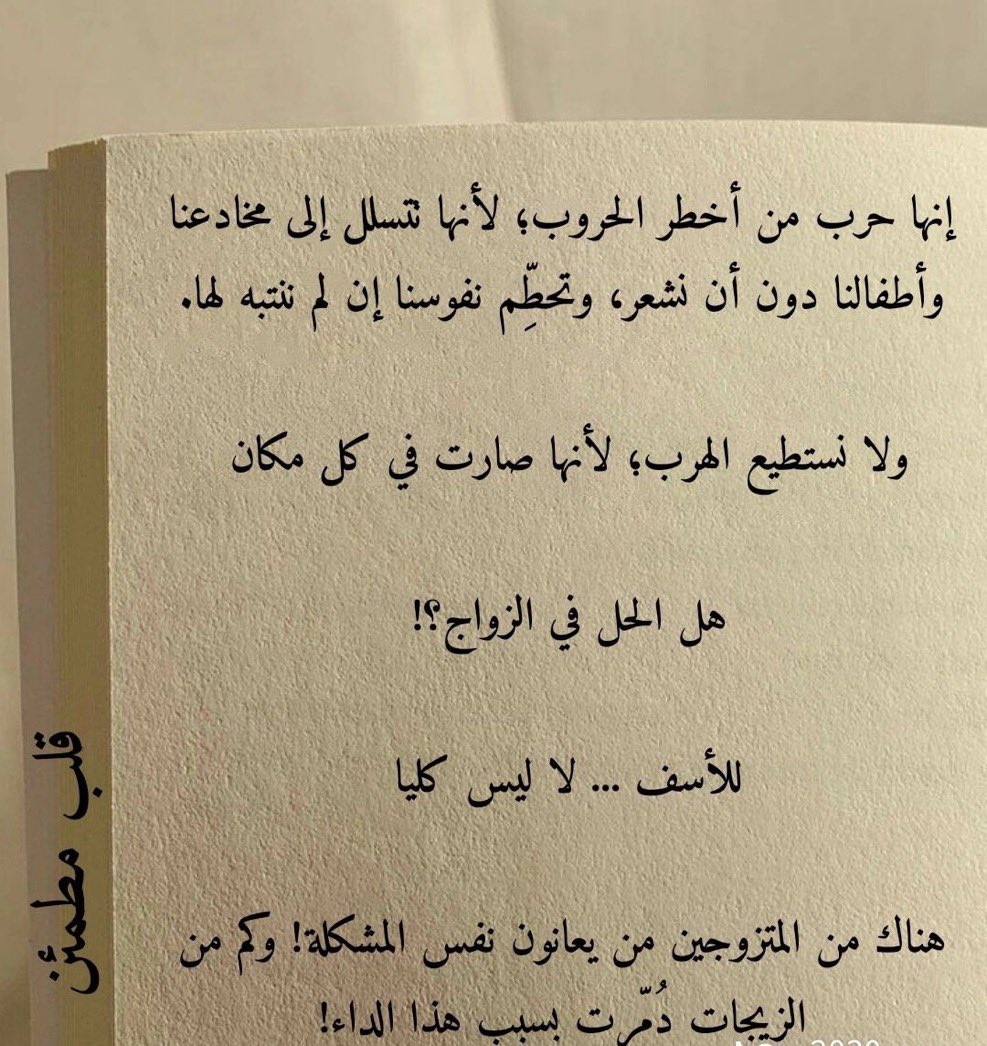 إنها حرب من أخطر الحروب؛ لأنها نتسلل إلى مخادعنا
وأطفالنا دون أن نشعر، وتحطِّم نفوسنا إن لم ننتبه لها.
ولا نستطيع الهرب؛ لأنها صارت في كل مكان
هل الحل في الزواج؟!
للأسف ... لا ليس كليا
هناك من المتزوجين من يعانون نفس المشكلة! وكم من
الزيجات دُمّرت بسبب هذا الداء!
قلب مطمئن